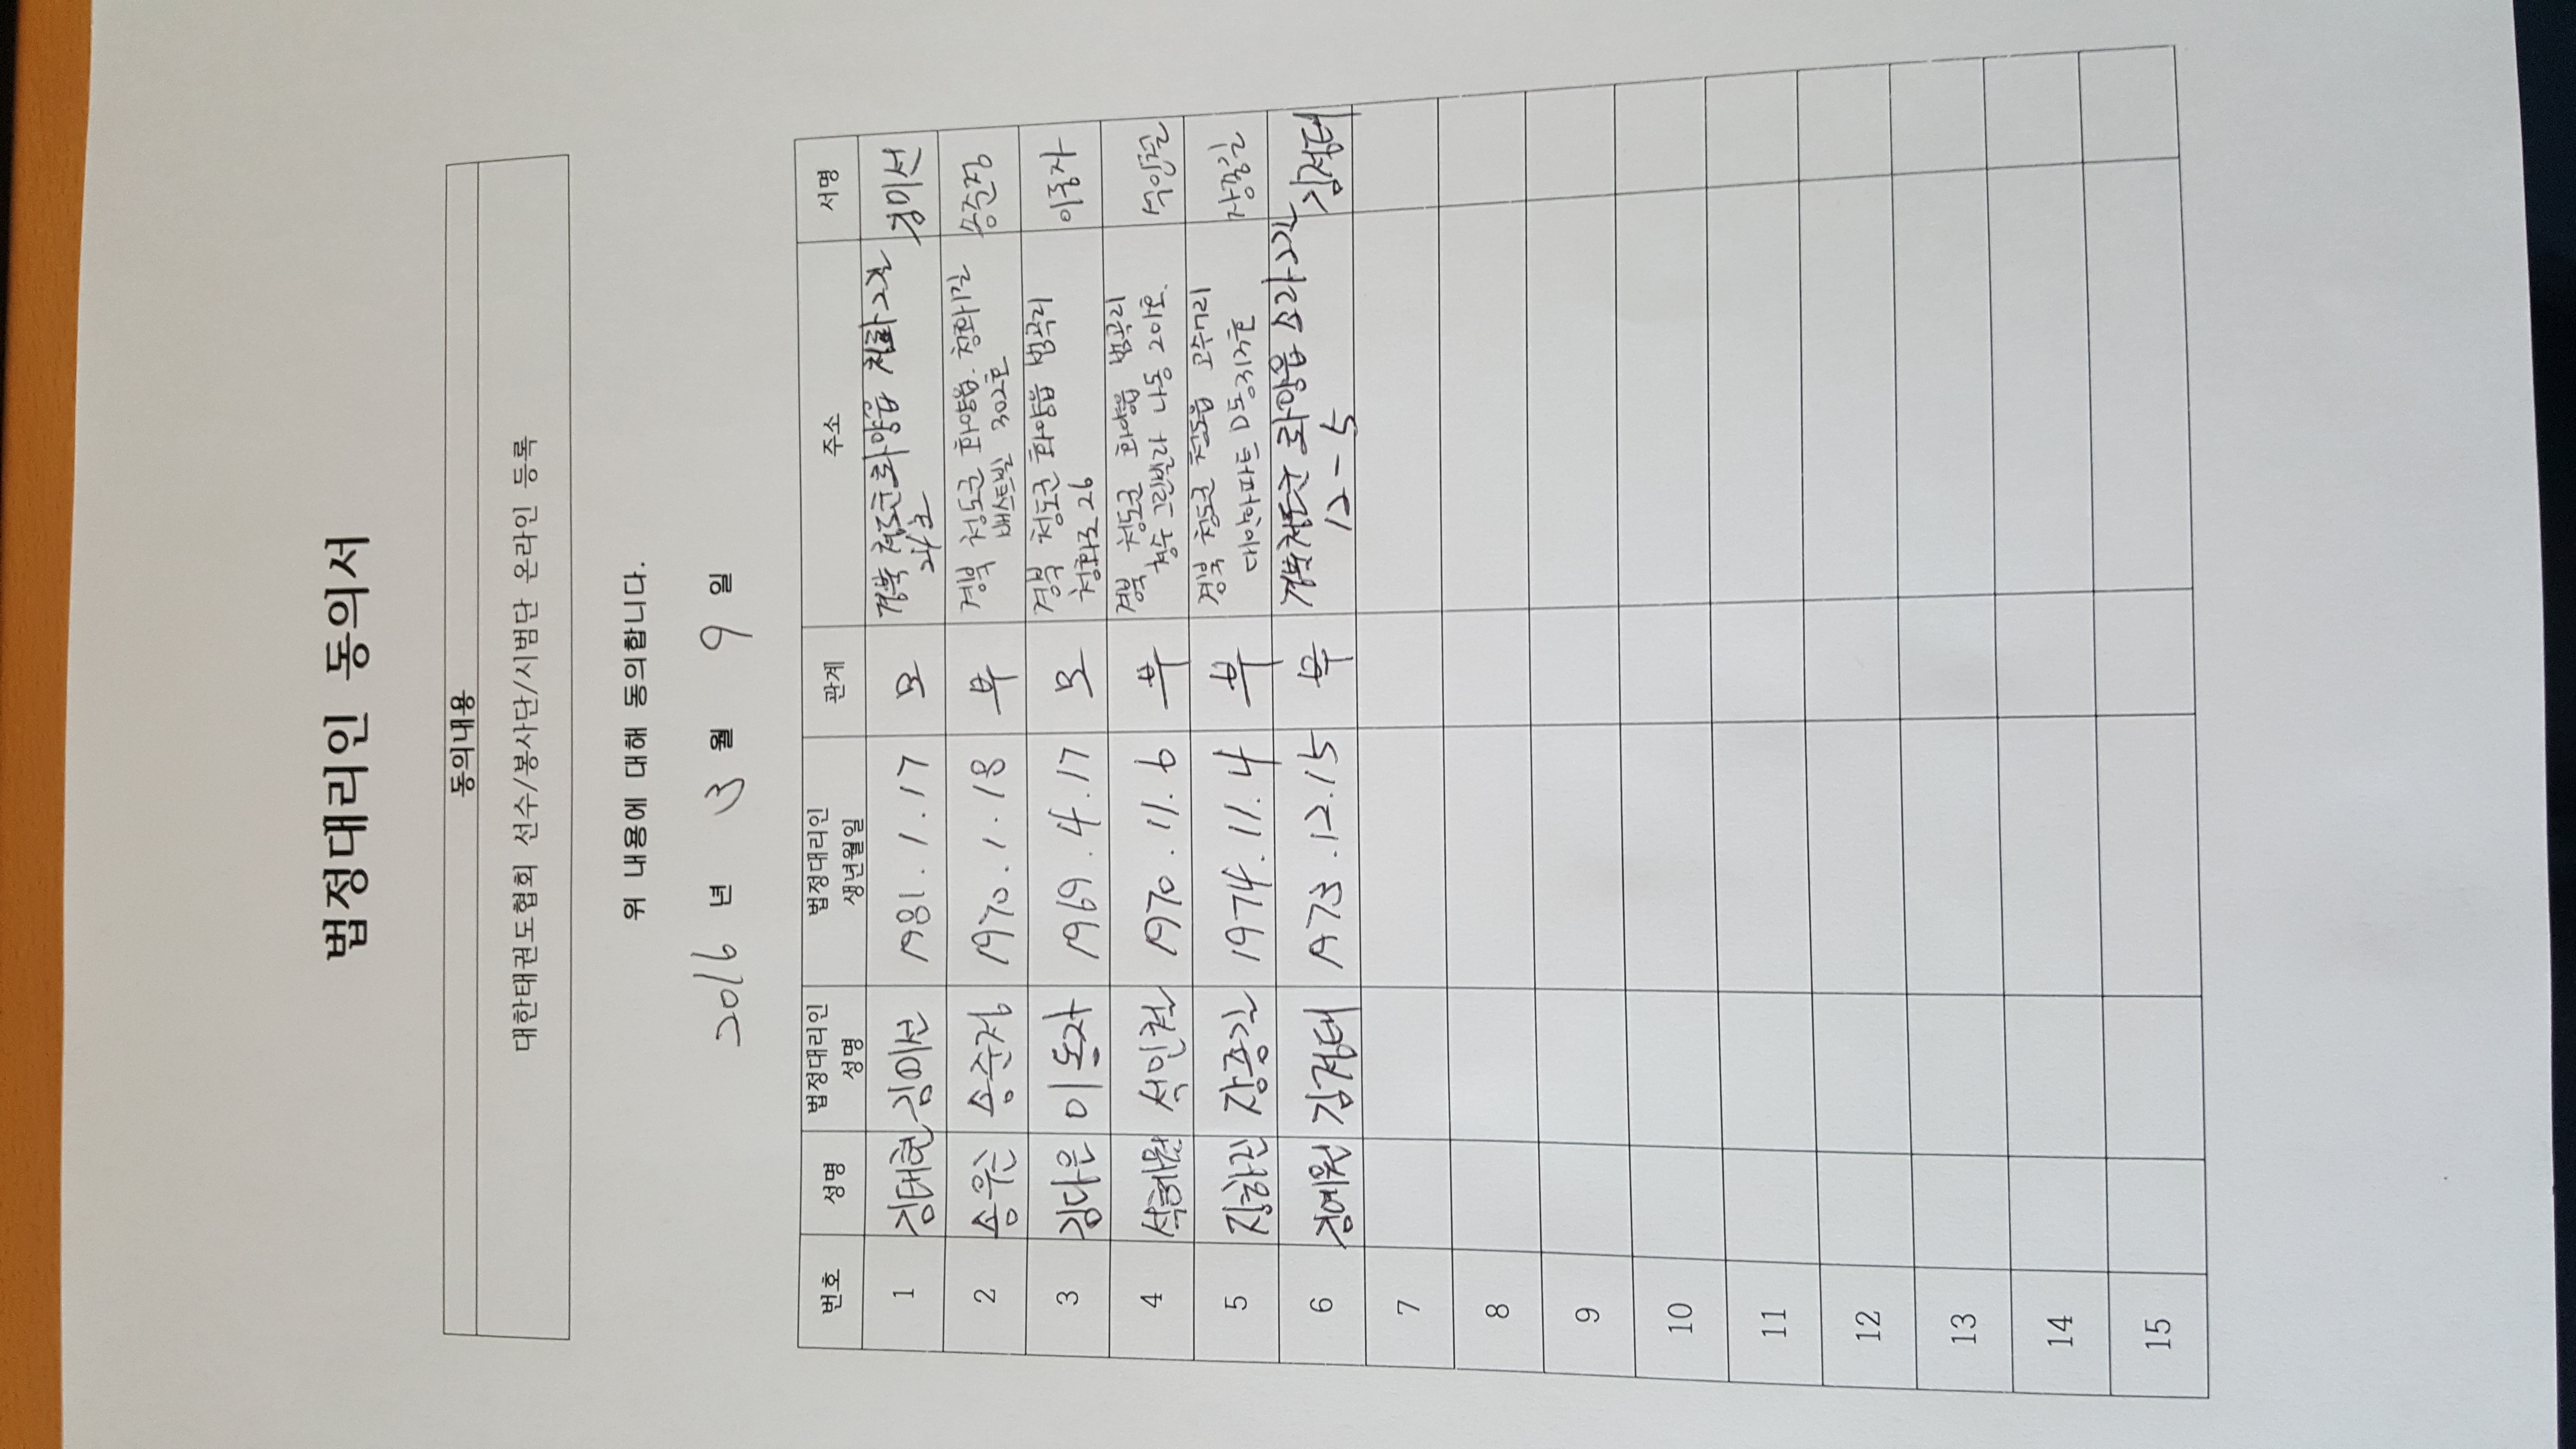 법정대리인 동의서
동의내용
대한태권도협회 선수/봉사단/시범단 온라인 등록
위 내용에 대해 동의합니다.
2016 년 3 월 9 일
번호 성명 법정대리인 성명 법정대리인 생년월일 관계 주소 서명
1 김태현 김미선 1981.1.17 모 경북 청도군 화양읍 청화2길 김미선
2 송우준 송준정 1970.1.18 부 경북 청도군 화양읍 청화리길 송준정
베스트빌 302호
3 김다은 이동자 1969.4.17 모 경북 청도군 화양읍 범곡리 이동자
청화로 26
4 석혜원 석인천 1970.11.6 부 경북 청도군 화양읍 범곡리 석인천
청수그린빌라 나동 201호
5 장하진 장종길 1974.11.4 부 경북 청도군 청도읍 고수7리 장종길
대안아파트 D동 313호
6 김예원 김정태 1973.12.15 부 경북 청도군 화양읍 김정태
12-5
7
8
9
10
11
12
13
14
15